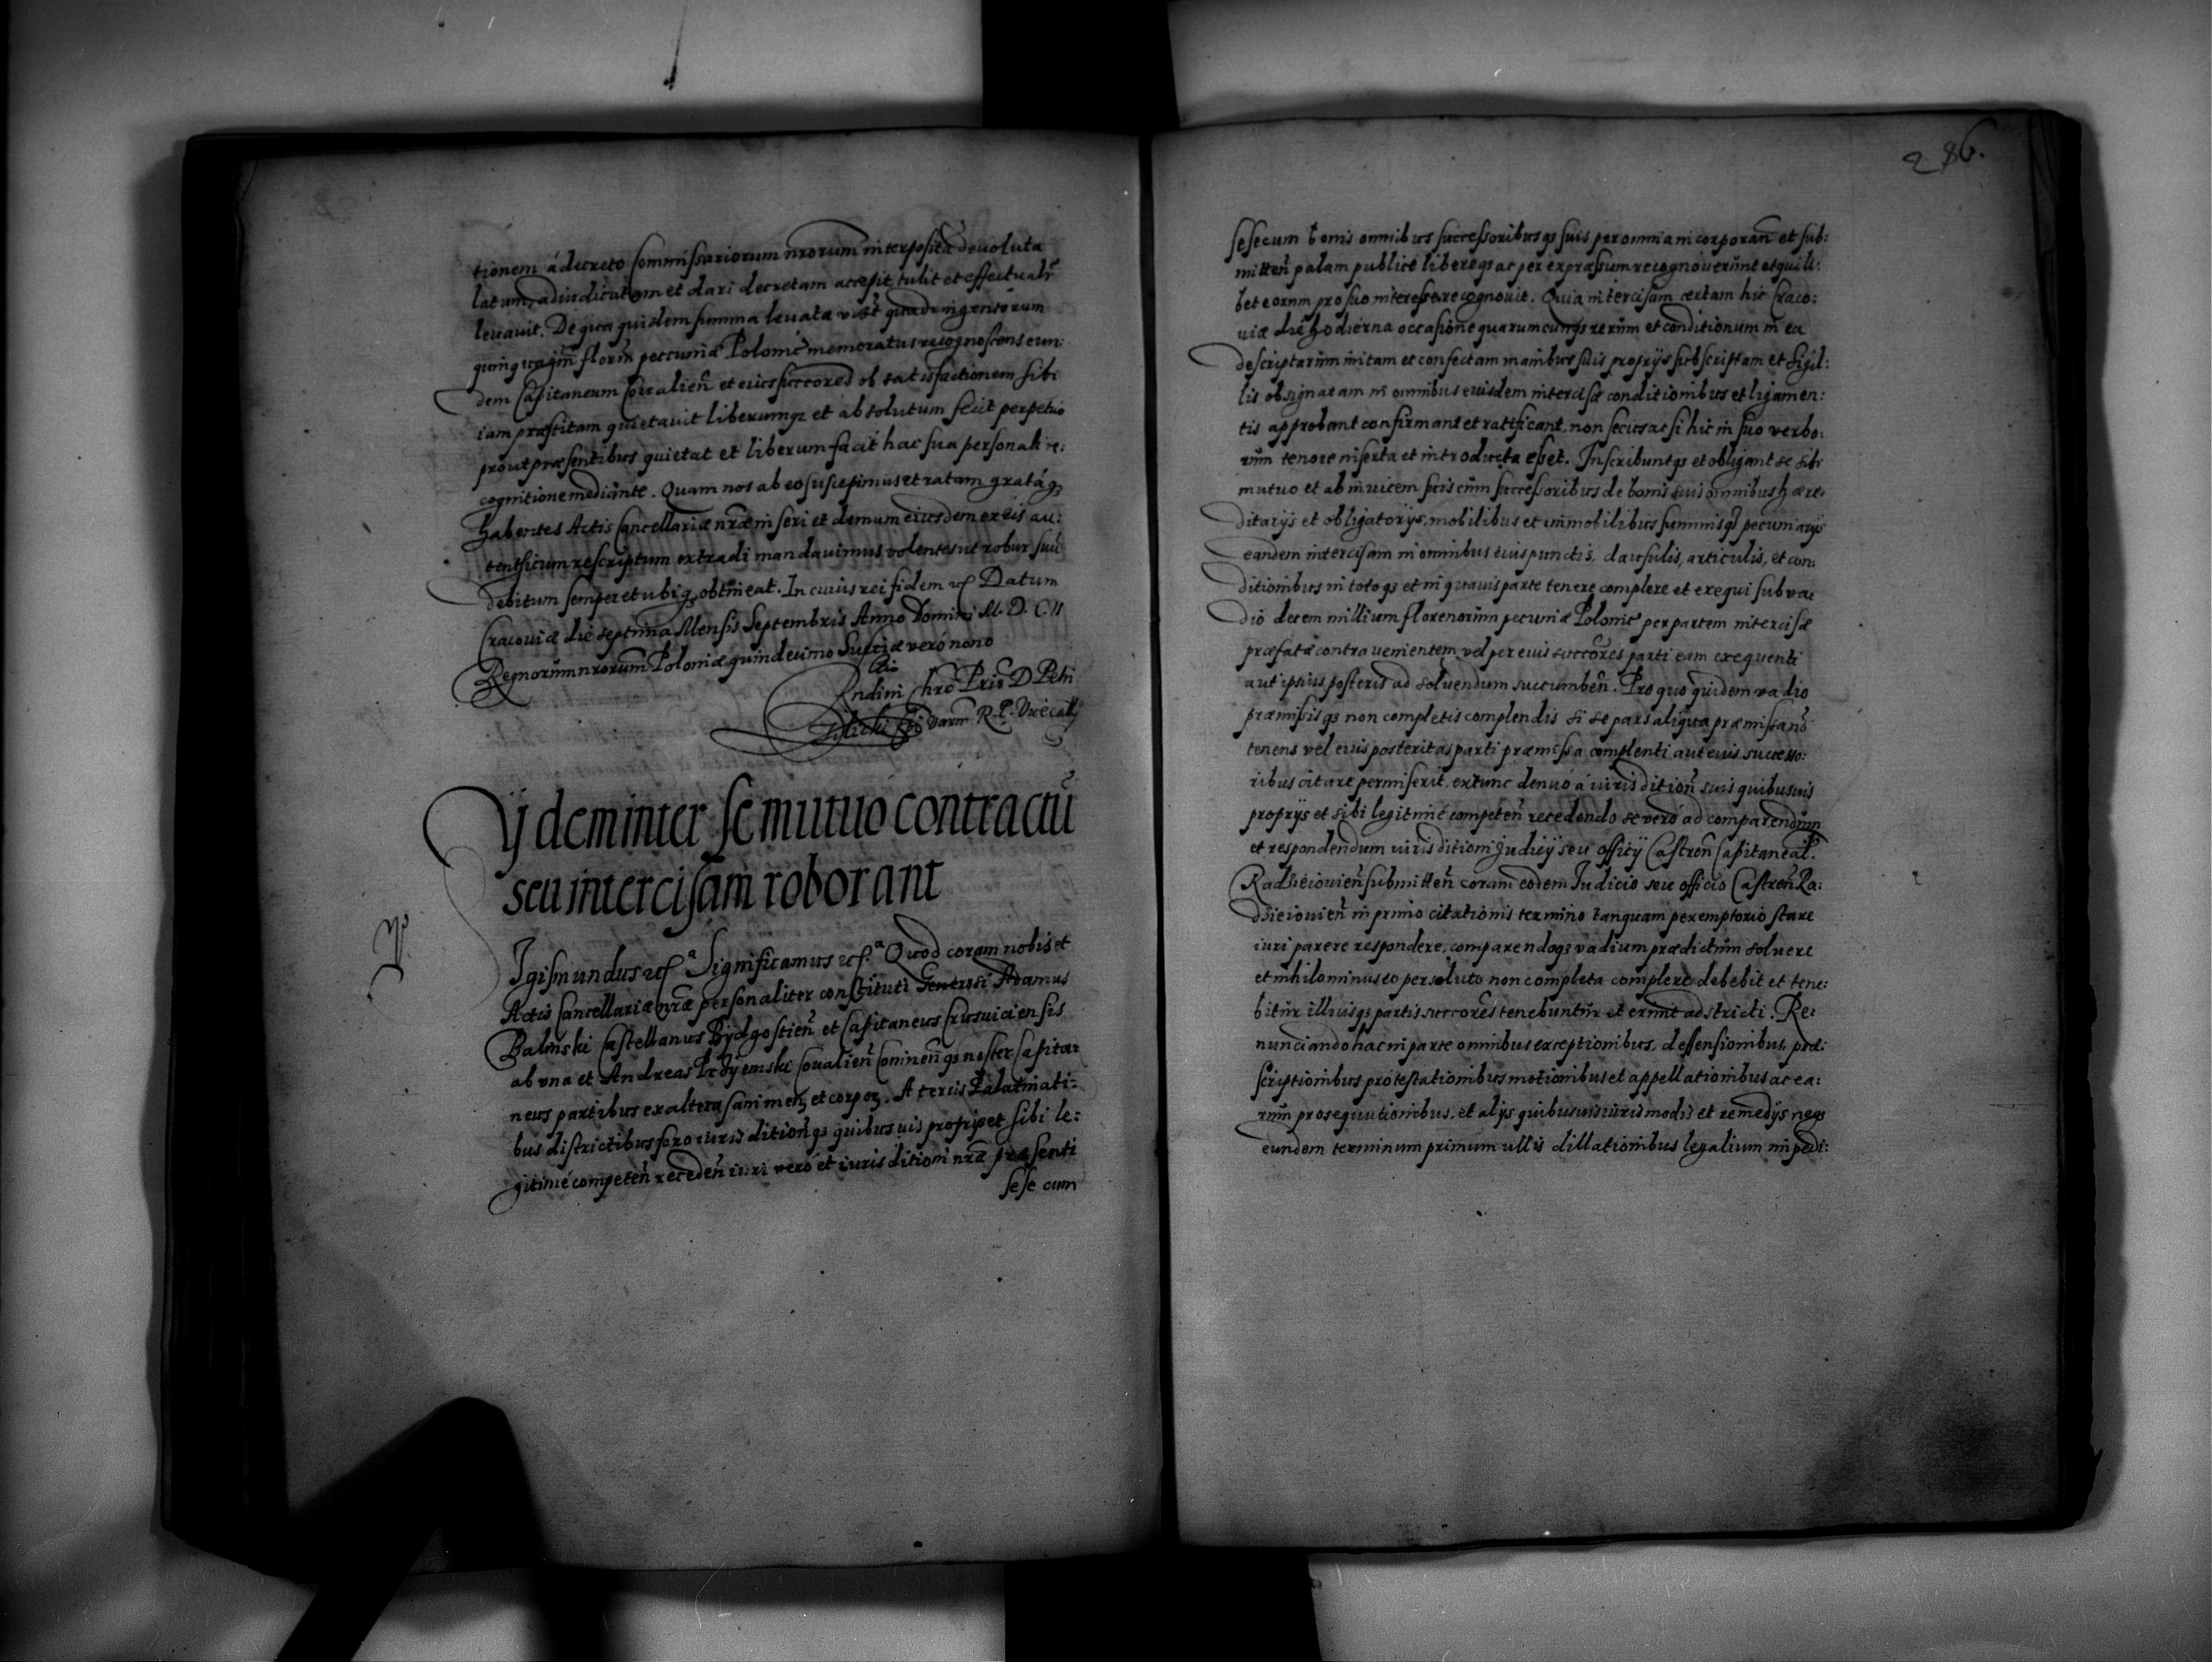 tionem á decreto Commissariorum nrorum interposita deuoluta
latum, adiudicatam et dari decretam accepit, tulit et effectualr
leuauit. De qua quidem summa leuata quadringentorum
quinquagin florin pecuniæ Polonic memoratus recognoscens eun:
dem Capitaneum Coualien et eius succores ob satisfactionem sibi
iam præstitam quietauit liberumq3 et absolutum fecit perpetuo
prout præsentibus quietat et liberum facit hac sua personali re:
cognitione mediante. Quam nos ab eo suscepimus et ratam gratáq3
habentes Actis Cancellariæ nræ inseri et demum eiusdem ex eis au:
tenticum rescriptum extradi mandauimus volentes ut robur suū
debitum semper et ubiq3 obtineat. In cuius rei fidem etc Datum
Cracouiæ die septima Mensis Septembris Anno Domini M. D. C. II
Regnorum nrorum Poloniæ quindecimo Suetiæ veró nono
Rndini Chro Pris D Petri
Tilicki Epi Varm R. P. Vicecally
Iÿdem inter se mutuo contractū
seu intercisam roborant
Igismundus etc Significamus etc Quod coram nobis et
Actis Cancellariæ nræ personaliter constituti Generosi Adamus
Balinski Castellanus Bydgostien et Capitaneus Crusuiciensis
ab vna et Andreas Prziiemski Coualien Coninenq3 noster Capita:
neus partibus ex altera sani men3 et corpor3. A terris Palatinati=
bus districtibus foro iurisdictionq3 quibusuis proprijs et sibi le:
gitimé competen receden iuri veró et iurisditioni nræ præsenti
sese cum
286.
sese cum bonis omnibus successoribusq3 suis per omnia incorporan et sub:
mitten palam publicé liberéq3 ac per expræssum recognouerunt et quili:
bet eorum pro suo interesse recognouit. Quia intercisam certam hic Craco:
uiæ die hodierna occasione quarumcunq3 rerum et conditionum in ea
descriptarum initam et confectam manibus suis proprijs subscriptam et Sigil:
lis obsignatam in omnibus euisdem intercisæ conditionibus et ligamen:
tis approbant confirmant et ratificant, non secus ac si hic in suo verbo:
rum tenore inserta et introducta esset. Inscribuntq3 et obligant se sibi
mutuo et ab inuicem suis cum successoribus de bonis suis omnibus hære:
ditarijs et obligatorijs, mobilibus et immobilibus summisq3 pecuniarijs
eandem intercisam in omnibus euis punctis, clausulis, articulis, et con:
ditionibus in totoq3 et in quauis parte tenere complere et exequi sub va:
dio decem millium florenorum pecuniæ Polonic per partem intercisæ
præfatæ contrauenientem vel per euis succores parti eam exequenti
aut ipsius posteris ad soluendum succumben. Pro quo quidem vadio
præmissisq3 non completis complendis si se pars aliqua præmissa no
tenens vel euis posteritas parti præmissa complenti aut euis successo:
ribus citare permiserit, extunc denuó á iurisdition suis quibusuis
proprijs et sibi legitimé competen recedendo se veró ad comparendum
et respondendum iurisditioni Judicij seu officij Castren Capitaneal
Radzieiouien submitten coram eodem Judicio seu officio Castren Ra:
dzieiouien in primo citationis termino tanquam peremptorio stare
iuri parere respondere, comparendoq3 vadium prædictum soluere
et nihilominus eo persoluto non completa complere debebit et tene:
bitur illiusq3 partis succores tenebuntur et erunt adstricti. Re:
nunciando hac in parte omnibus exceptionibus, deffensionibus, præ:
scriptionibus protestationibus motionibus et appellationibus ac ea:
rum prosequutionibus, et alijs quibusuis iuris modis et remedijs neq3
eundem terminum primum ullis dillationibus legalium impedi: